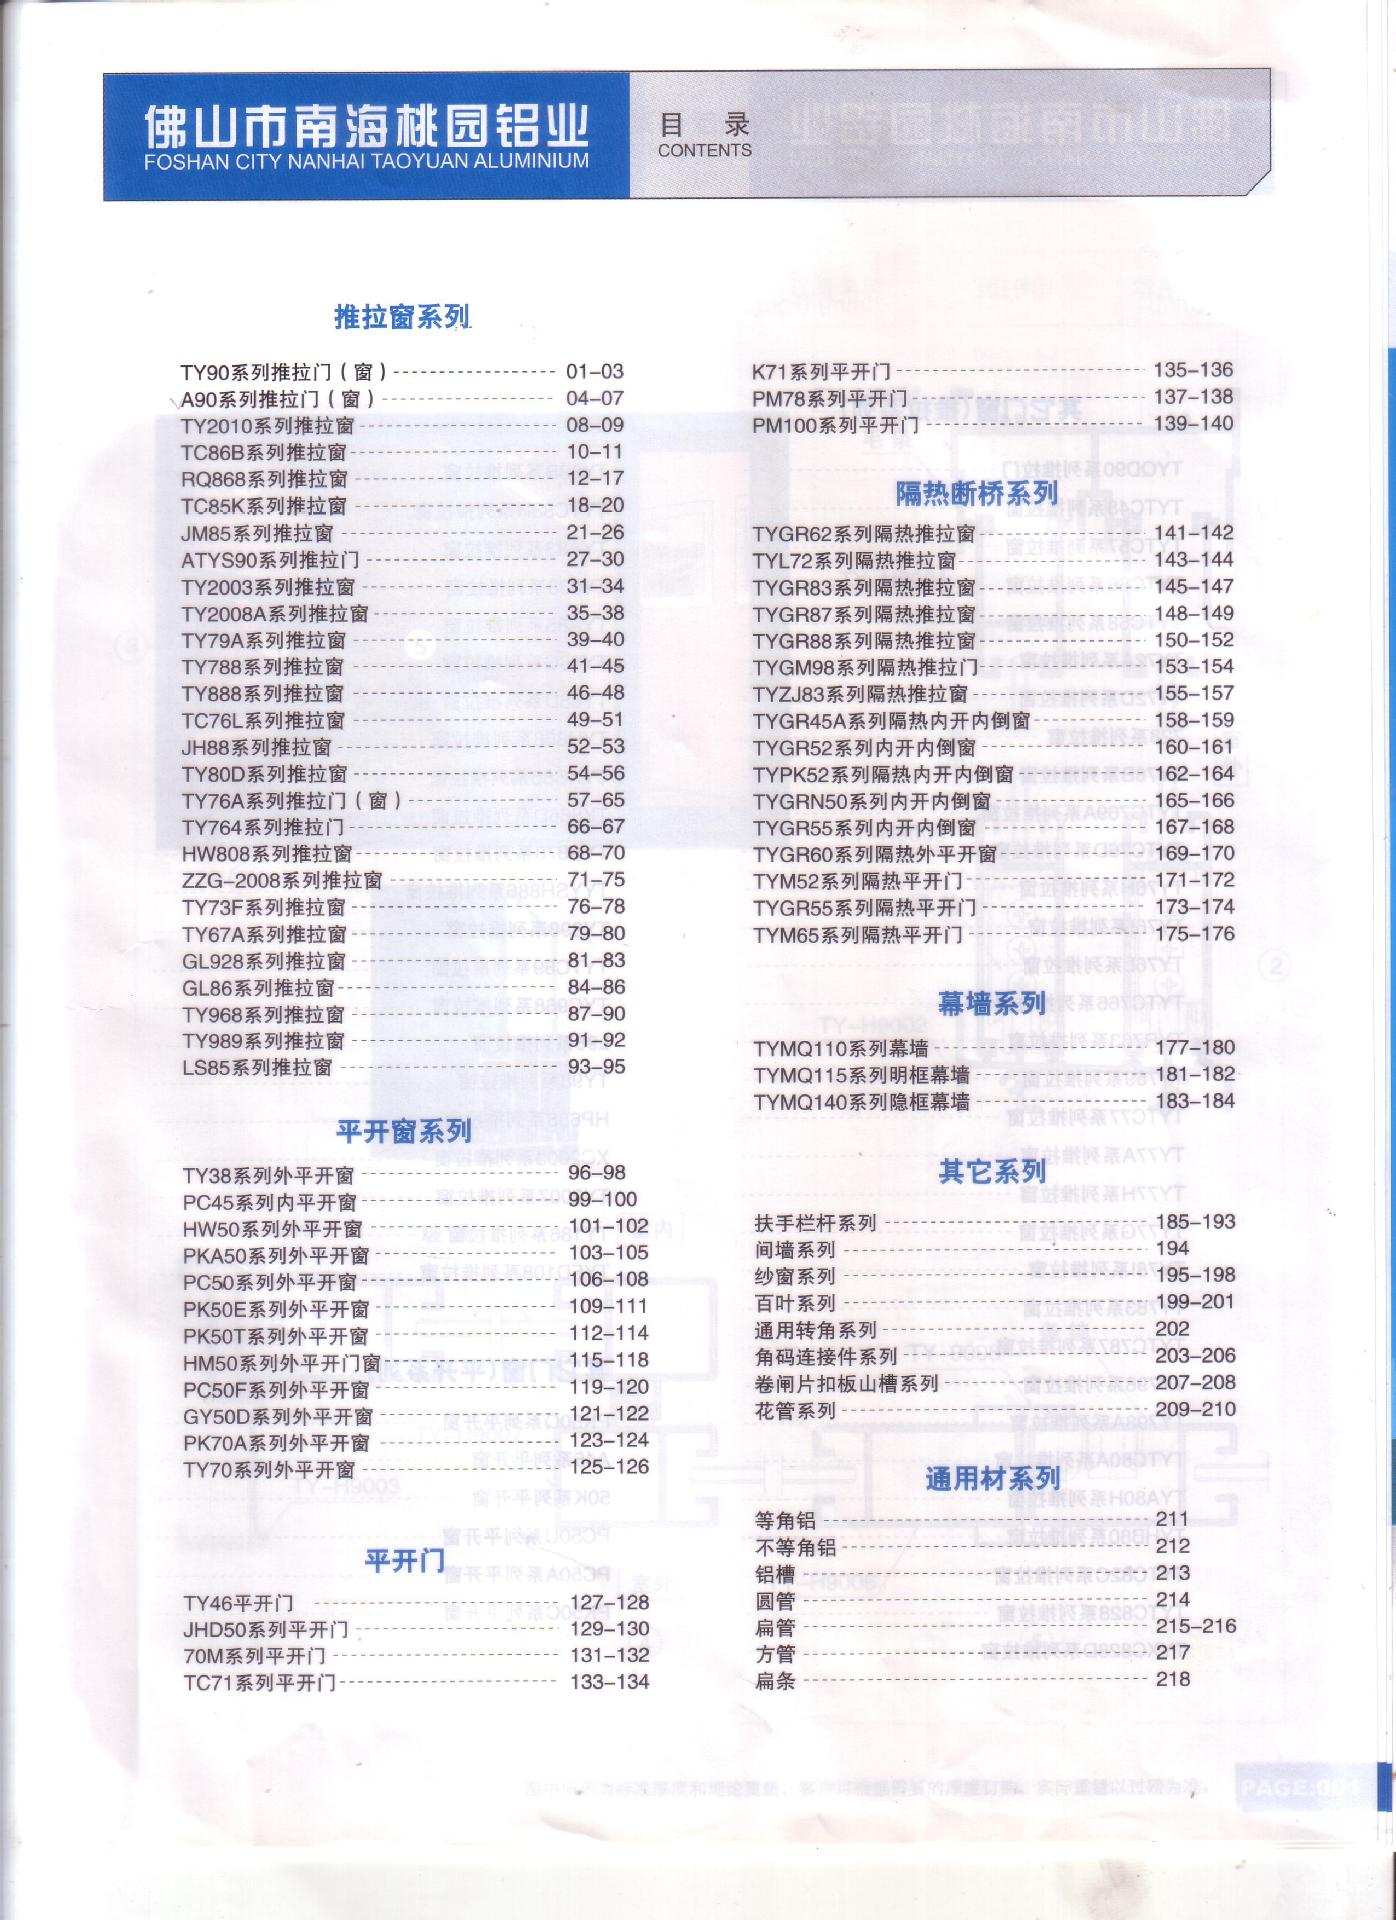 佛山市南海桃园铝业
FOSHAN CITY NANHAI TAOYUAN ALUMINIUM
目 录
CONTENTS
推拉窗系列
TY90系列推拉门（窗） 01-03
A90系列推拉门（窗） 04-07
TY2010系列推拉窗 08-09
TC86B系列推拉窗 10-11
RQ868系列推拉窗 12-17
TC85K系列推拉窗 18-20
JM85系列推拉窗 21-26
ATYS90系列推拉门 27-30
TY2003系列推拉窗 31-34
TY2008A系列推拉窗 35-38
TY79A系列推拉窗 39-40
TY788系列推拉窗 41-45
TY888系列推拉窗 46-48
TC76L系列推拉窗 49-51
JH88系列推拉窗 52-53
TY80D系列推拉窗 54-56
TY76A系列推拉门（窗） 57-65
TY764系列推拉门 66-67
HW808系列推拉窗 68-70
ZZG-2008系列推拉窗 71-75
TY73F系列推拉窗 76-78
TY67A系列推拉窗 79-80
GL928系列推拉窗 81-83
GL86系列推拉窗 84-86
TY968系列推拉窗 87-90
TY989系列推拉窗 91-92
LS85系列推拉窗 93-95
平开窗系列
TY38系列外平开窗 96-98
PC45系列内平开窗 99-100
HW50系列外平开窗 101-102
PKA50系列外平开窗 103-105
PC50系列外平开窗 106-108
PK50E系列外平开窗 109-111
PK50T系列外平开窗 112-114
HM50系列外平开门窗 115-118
PC50F系列外平开窗 119-120
GY50D系列外平开窗 121-122
PK70A系列外平开窗 123-124
TY70系列外平开窗 125-126
平开门
TY46平开门 127-128
JHD50系列平开门 129-130
70M系列平开门 131-132
TC71系列平开门 133-134
K71系列平开门 135-136
PM78系列平开门 137-138
PM100系列平开门 139-140
隔热断桥系列
TYGR62系列隔热推拉窗 141-142
TYL72系列隔热推拉窗 143-144
TYGR83系列隔热推拉窗 145-147
TYGR87系列隔热推拉窗 148-149
TYGR88系列隔热推拉窗 150-152
TYGM98系列隔热推拉门 153-154
TYZJ83系列隔热推拉窗 155-157
TYGR45A系列隔热内开内倒窗 158-159
TYGR52系列内开内倒窗 160-161
TYPK52系列隔热内开内倒窗 162-164
TYGRN50系列内开内倒窗 165-166
TYGR55系列内开内倒窗 167-168
TYGR60系列隔热外平开窗 169-170
TYM52系列隔热平开门 171-172
TYGR55系列隔热平开门 173-174
TYM65系列隔热平开门 175-176
幕墙系列
TYMQ110系列幕墙 177-180
TYMQ115系列明框幕墙 181-182
TYMQ140系列隐框幕墙 183-184
其它系列
扶手栏杆系列 185-193
间墙系列 194
纱窗系列 195-198
百叶系列 199-201
通用转角系列 202
角码连接件系列 203-206
卷闸片扣板山槽系列 207-208
花管系列 209-210
通用材系列
等角铝 211
不等角铝 212
铝槽 213
圆管 214
扁管 215-216
方管 217
扁条 218
PAGE:001